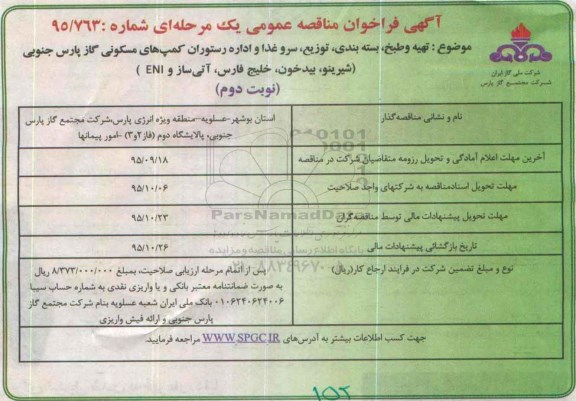 آگهی فراخوان مناقصه عمومی یک مرحله‌ای شماره :۹۵/۷۶۳
موضوع : تهیه وطبخ، بسته بندی، توزیع، سرو غذا و اداره رستوران کمپ‌های مسکونی گاز پارس جنوبی
(شیرینو، بیدخون، خلیج فارس، آتی‌ساز و ENI )
(نوبت دوم)
شرکت ملی گاز ایران
شرکت مجتمع گاز پارس جنوبی
نام و نشانی مناقصه‌گذار
استان بوشهر-عسلویه-منطقه ویژه انرژی پارس،شرکت مجتمع گاز پارس
جنوبی، پالایشگاه دوم (فاز۲و۳) -امور پیمانها
آخرین مهلت اعلام آمادگی و تحویل رزومه متقاضیان شرکت در مناقصه
۹۵/۰۹/۱۸
مهلت تحویل اسنادمناقصه به شرکتهای واجد صلاحیت
۹۵/۱۰/۰۶
مهلت تحویل پیشنهادات مالی توسط مناقصه‌گران
۹۵/۱۰/۲۳
تاریخ بازگشائی پیشنهادات مالی
۹۵/۱۰/۲۶
نوع و مبلغ تضمین شرکت در فرایند ارجاع کار(ریال)
پس از اتمام مرحله ارزیابی صلاحیت، بمبلغ ۸/۳۷۳/۰۰۰/۰۰۰ ریال
به صورت ضمانتنامه معتبر بانکی و یا واریزی نقدی به شماره حساب سیبا
۰۱۰۶۲۴۰۶۲۴۰۰۶ بانک ملی ایران شعبه عسلویه بنام شرکت مجتمع گاز
پارس جنوبی و ارائه فیش واریزی
جهت کسب اطلاعات بیشتر به آدرس‌های WWW.SPGC.IR مراجعه فرمایید.
ParsNamadData
پایگاه اطلاع رسانی مناقصه و مزایده
۱۵۲